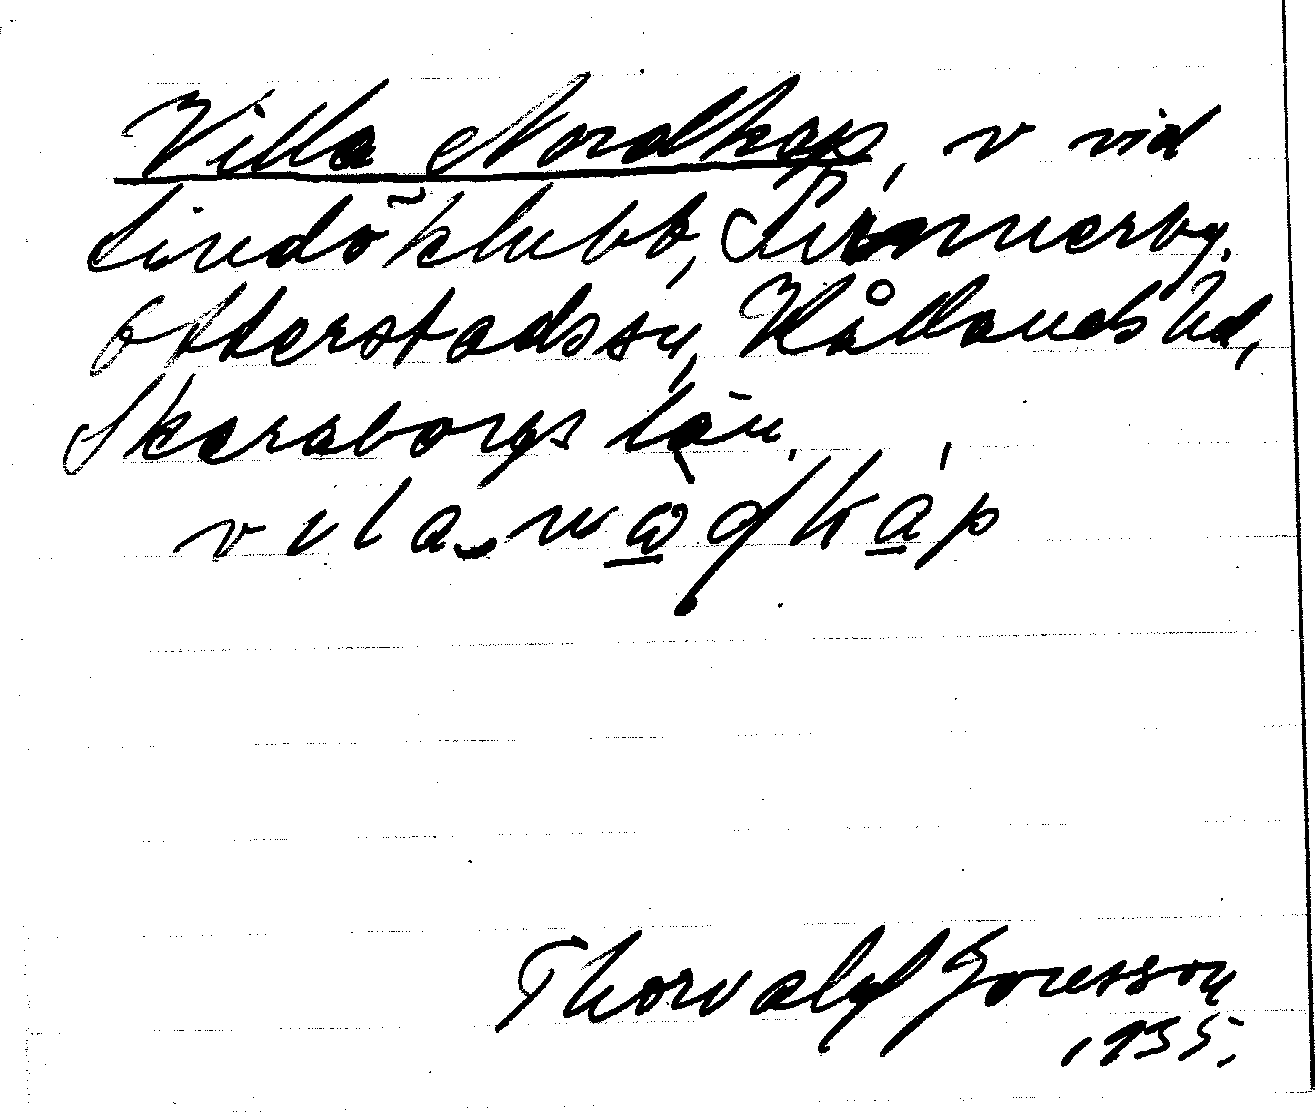 Villa Nordkap, v vid
Lindöklubb, Tinnerby.
Otterstads sn, Kållands hd,
Skaraborgs län.
Thorvald Jonsson
1935.